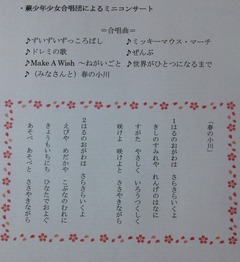 ・蕨少年少女合唱団によるミニコンサート
＝合唱曲＝
♪ずいずいずっころばし
♪ミッキーマウス・マーチ
♪ドレミの歌
♪ぜんぶ
♪Make A Wish ～ねがいごと
♪世界がひとつになるまで
♪（みなさんと）春の小川
「春の小川」
1はるのおがわは さらさらいくよ
きしのすみれや れんげのはなに
すがた やさしく いろうつくしく
咲けよ 咲けよと ささやきながら
2はるのおがわは さらさらいくよ
えびや めだかや こぶなのむれに
きょうもいちにち ひなたでおよぎ
あそべ あそべと ささやきながら